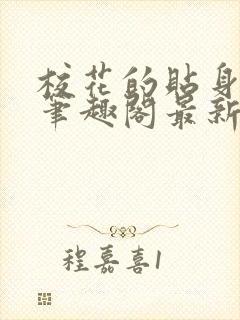 校花的贴身
笔趣阁最新
程嘉喜1